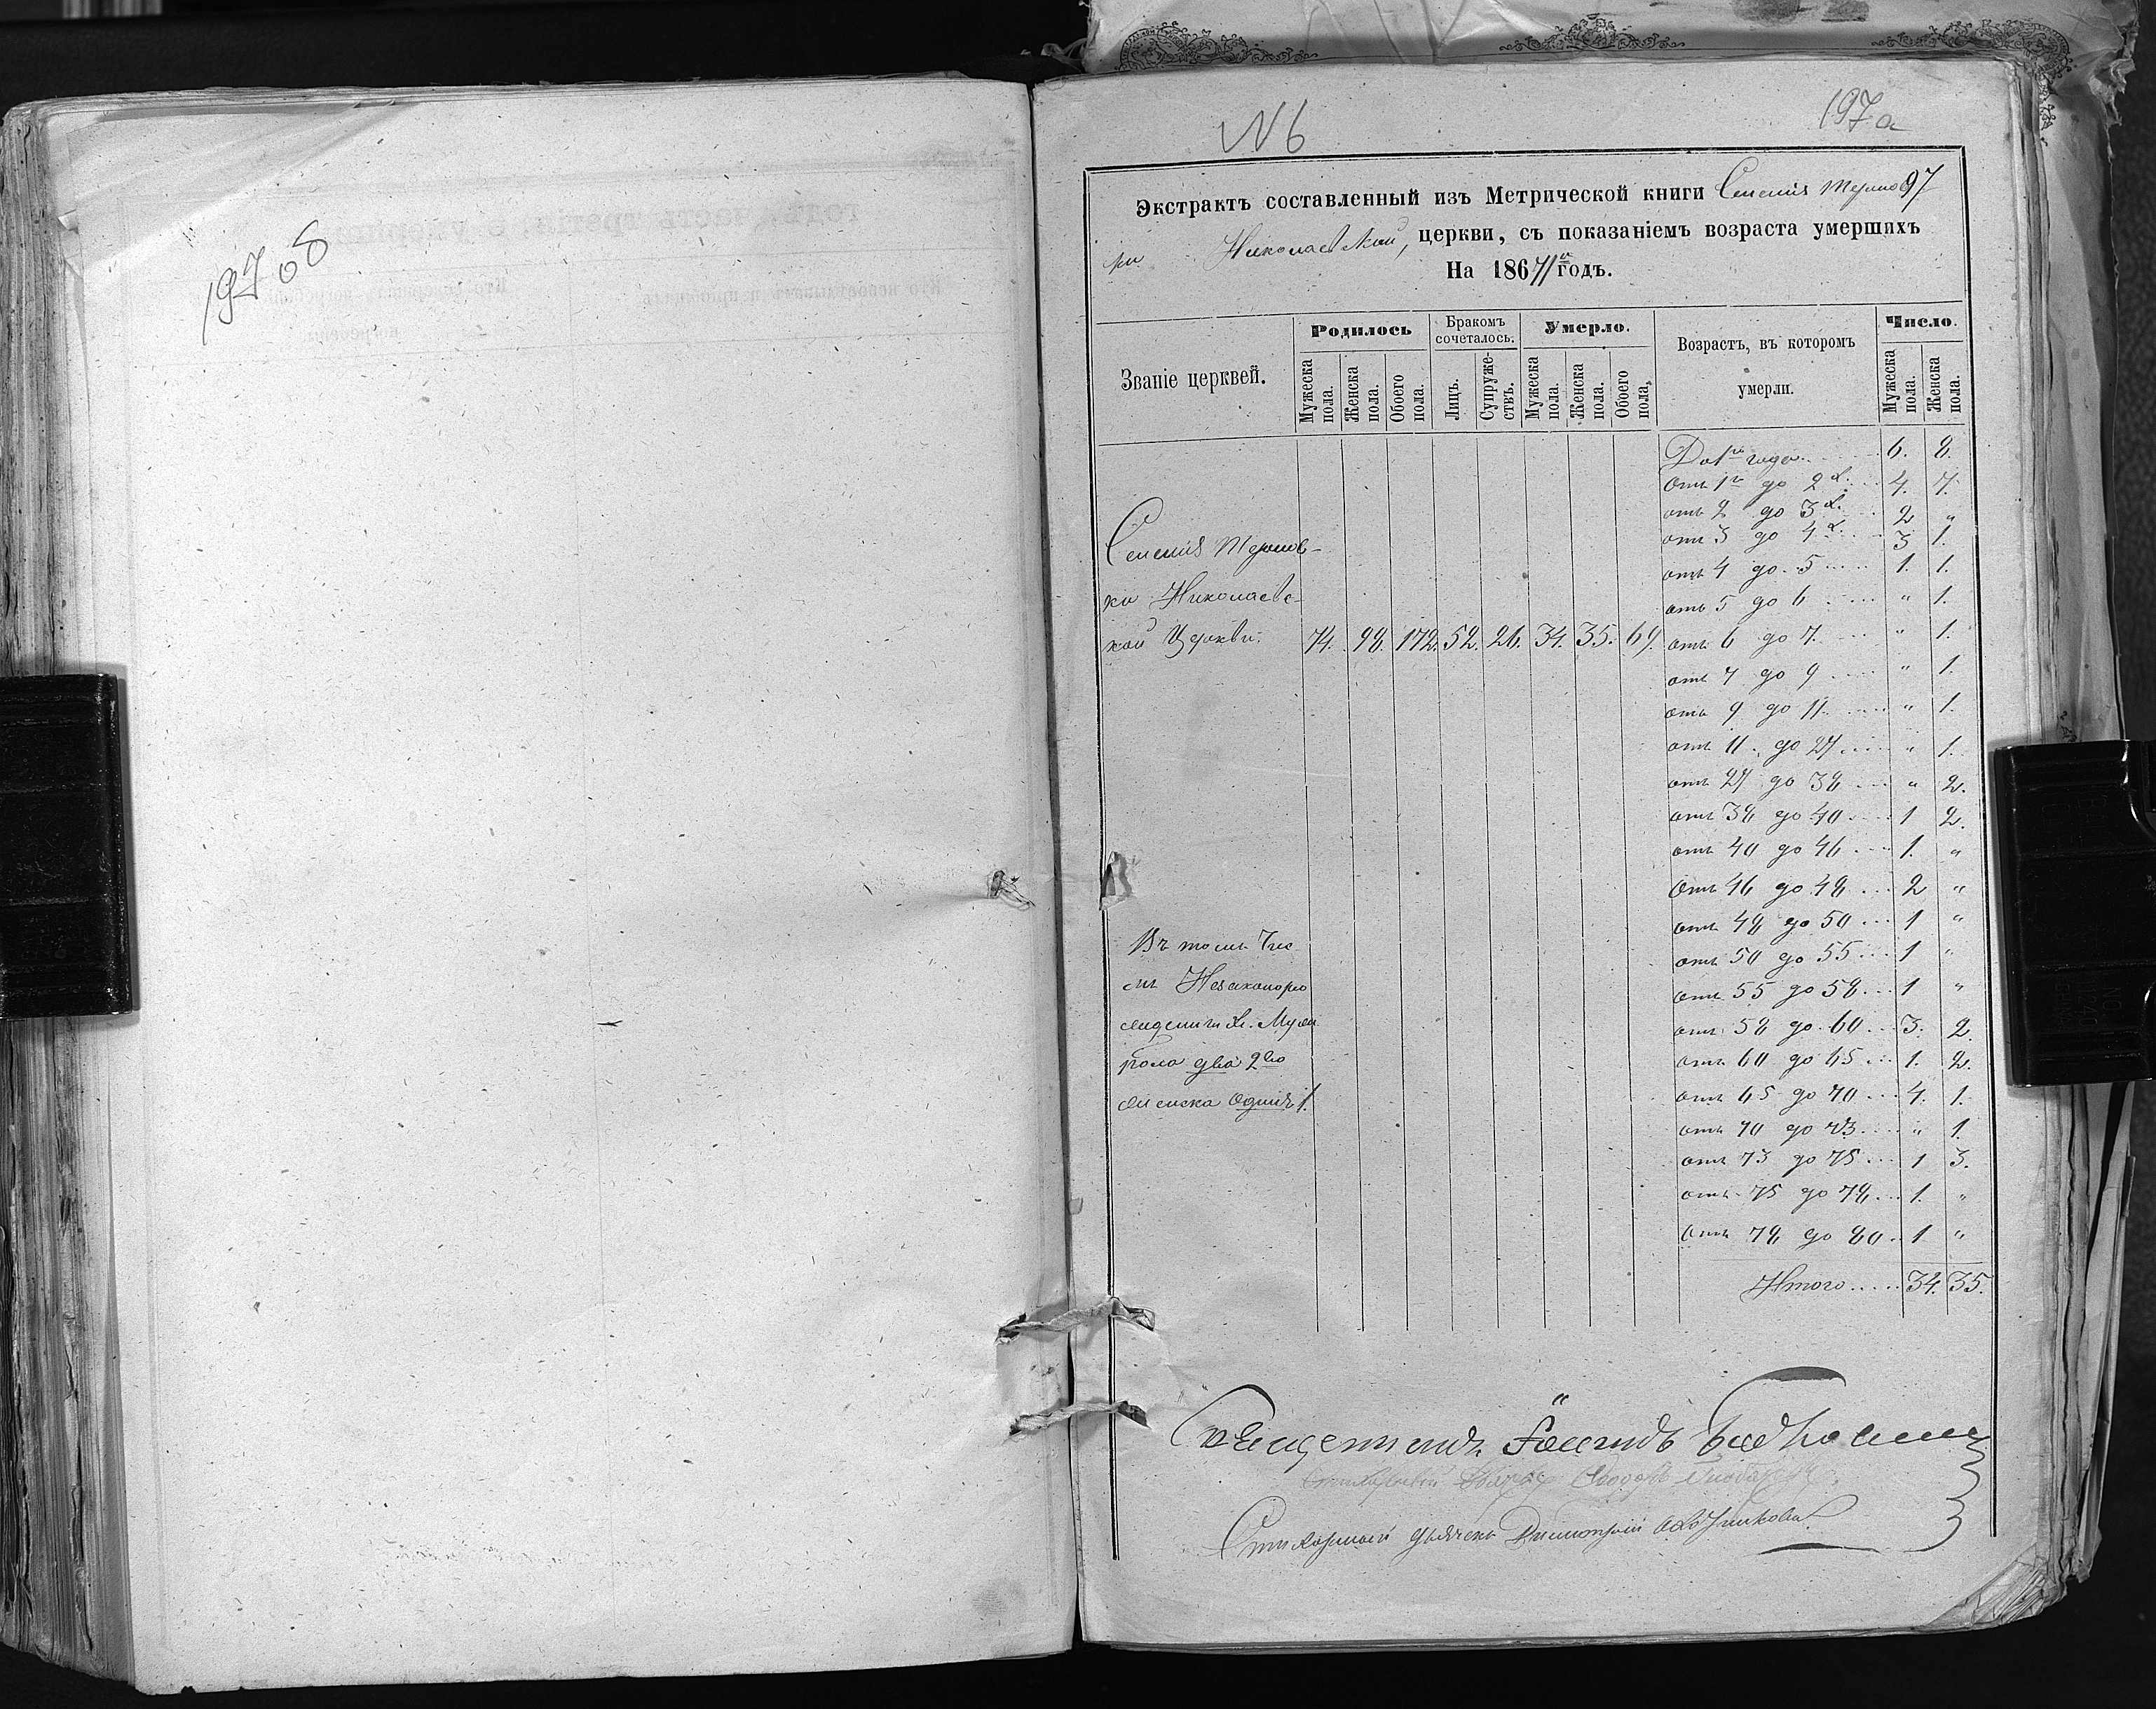 197 об
N 6
197а
97
Экстрактъ составленный изъ Метрической книги Селенія Тернов
ки Николаевской, церкви, съ показаніемъ возраста умершихъ
На 1867/1й годъ.
Званіе церквей.
Родилось
Бракомъ сочеталось.
Умерло.
Возрастъ, въ которомъ умерли.
Число.
Мужеска пола.
Женска пола.
Обоего пола.
Лицъ.
Супружествъ.
Мужеска пола.
Женска пола.
Обоего пола.
Мужеска пола.
Женска пола.
До 1го года 6. 8.
Отъ 1го до 2х 4. 7.
отъ 2 до 3х 2 "
отъ 3 до 4х 3 1.
отъ 4 до 5 1. 1.
отъ 5 до 6 " 1.
Селенія Тернов-
ки Николаевс-
кой Церкви. 74. 98. 172. 52. 26. 34. 35. 69.
отъ 6 до 7 " 1.
отъ 7 до 9 " 1.
отъ 9 до 11 " 1.
отъ 11 до 27 " 1.
отъ 27 до 38 " 2.
отъ 38 до 40 1 2.
отъ 40 до 46 1. "
Отъ 46 до 48 2 "
отъ 48 до 50 1 "
отъ 50 до 55 1 "
отъ 55 до 58 1 "
отъ 58 до 60 3. 2.
отъ 60 до 65 1. 2.
отъ 65 до 70 4. 1.
отъ 70 до 73 " 1.
отъ 73 до 75 1 3.
отъ 75 до 78 1. "
Отъ 78 до 80 1 "
Итого 34. 35.
Въ томъ Чис
лѣ Незаконоро
жденныхъ Муж
пола два 2
женска Одинъ 1.
Священникъ
Стихарный дьячекъ Димитрій